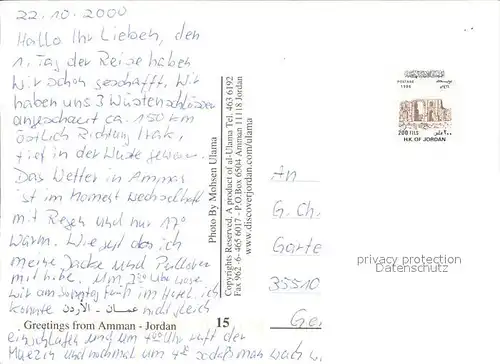 22.10.2000
Hallo Ihr Lieben, den
1. Tag der Reise haben
wir schon geschafft. Wir
haben uns 3 Wüstenschlösser
angeschaut ca. 150 km
östlich Richtung Irak,
tief in der Wüste gewesen.
Das Wetter in Amman
ist im Moment wechselhaft
mit Regen und nur 17°
warm. Wie gut das ich
meine Jacke und Pullover
mit habe. Um 3:00 Uhr
wir am Sonntag früh im Hotel. ich
konnte nicht gleich
einschlafen und um 4:00 Uhr ruft der
Muezzin und nochmal um sodaß man wach
عمـــان - الأردن
Greetings from Amman - Jordan
15
Photo By Mohsen Ulama
Copyrights Reserved, A product of al-Ulama Tel. 463 6192
Fax 962 -6- 465 6017 - P.O.Box 6504 Amman 11118 Jordan
www.discoverjordan.com/ulama
POSTAGE
200 FILS
٢٠٠ فلس
H.K. OF JORDAN
An
G. Ch.
Garte
35510
Ge
privacy protection
Datenschutz